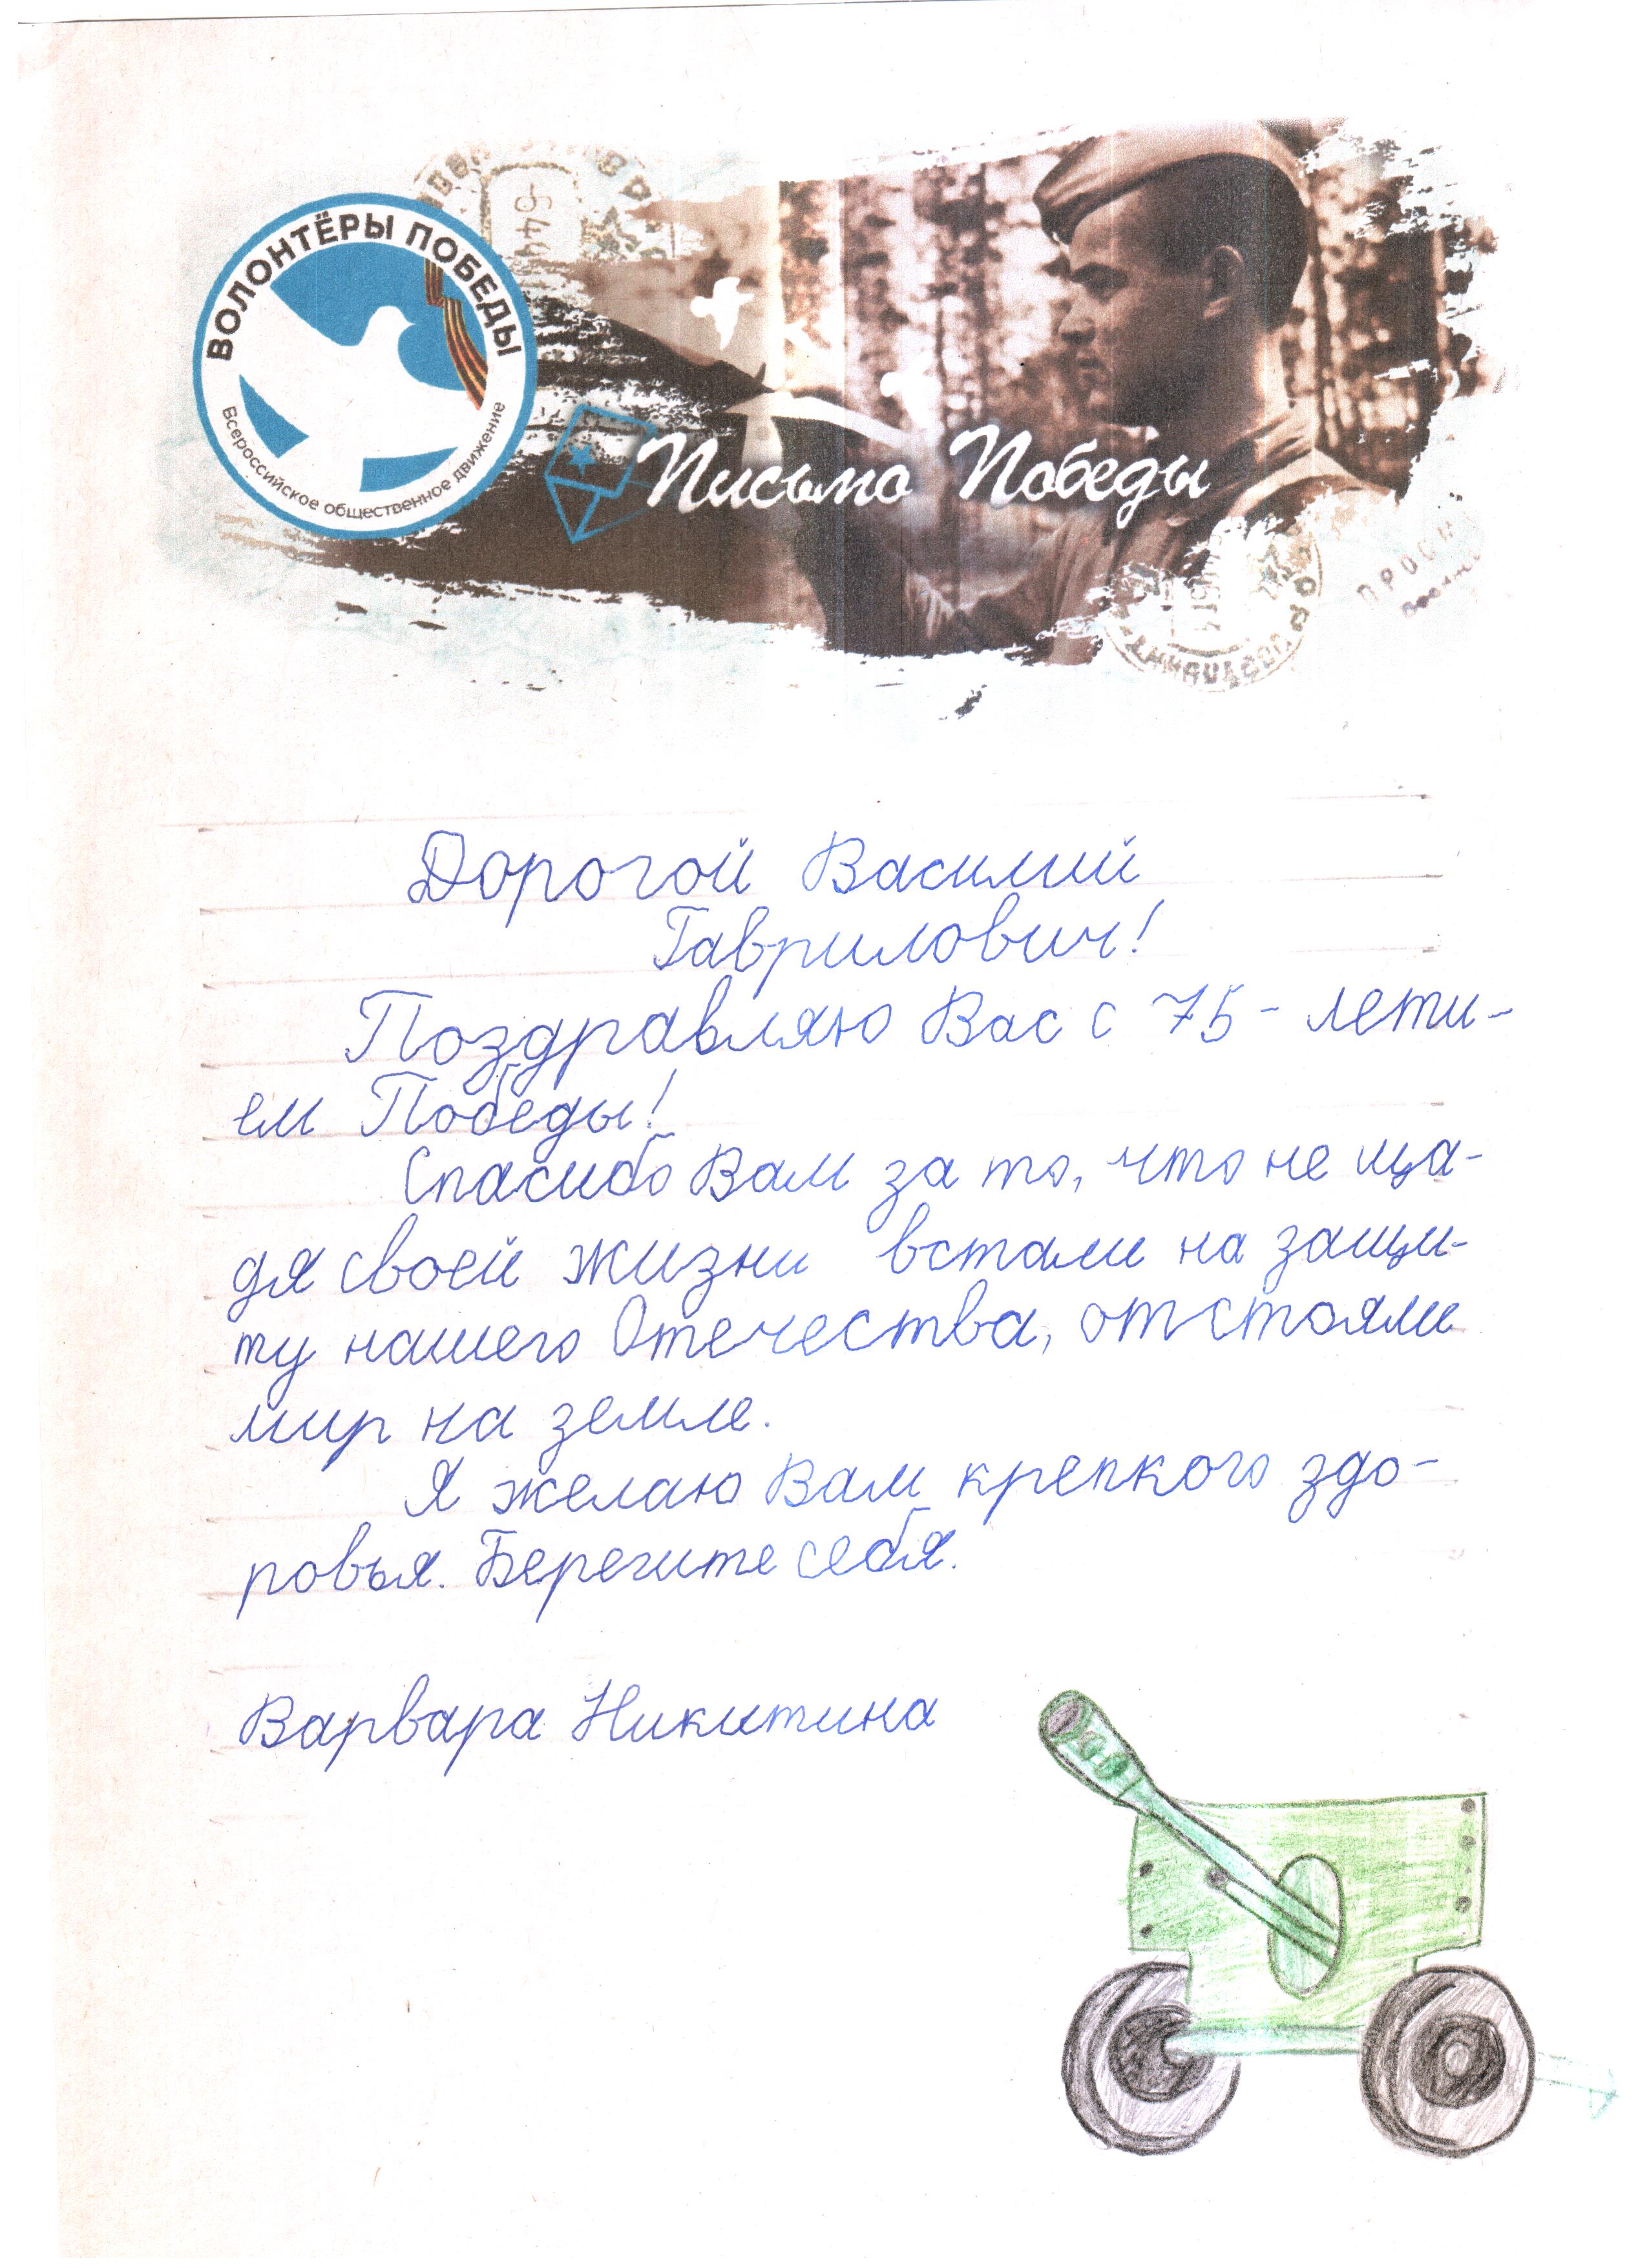 ВОЛОНТЁРЫ ПОБЕДЫ
Всероссийское общественное движение
Письмо Победы
Дорогой Василий
Гаврилович!
Поздравляю Вас с 75-лети-
ем Победы!
Спасибо Вам за то, что не ща-
дя своей жизни встали на защи-
ту нашего Отечества, отстояли
мир на земле.
Я желаю Вам крепкого здо-
ровья. Берегите себя.
Варвара Никитина